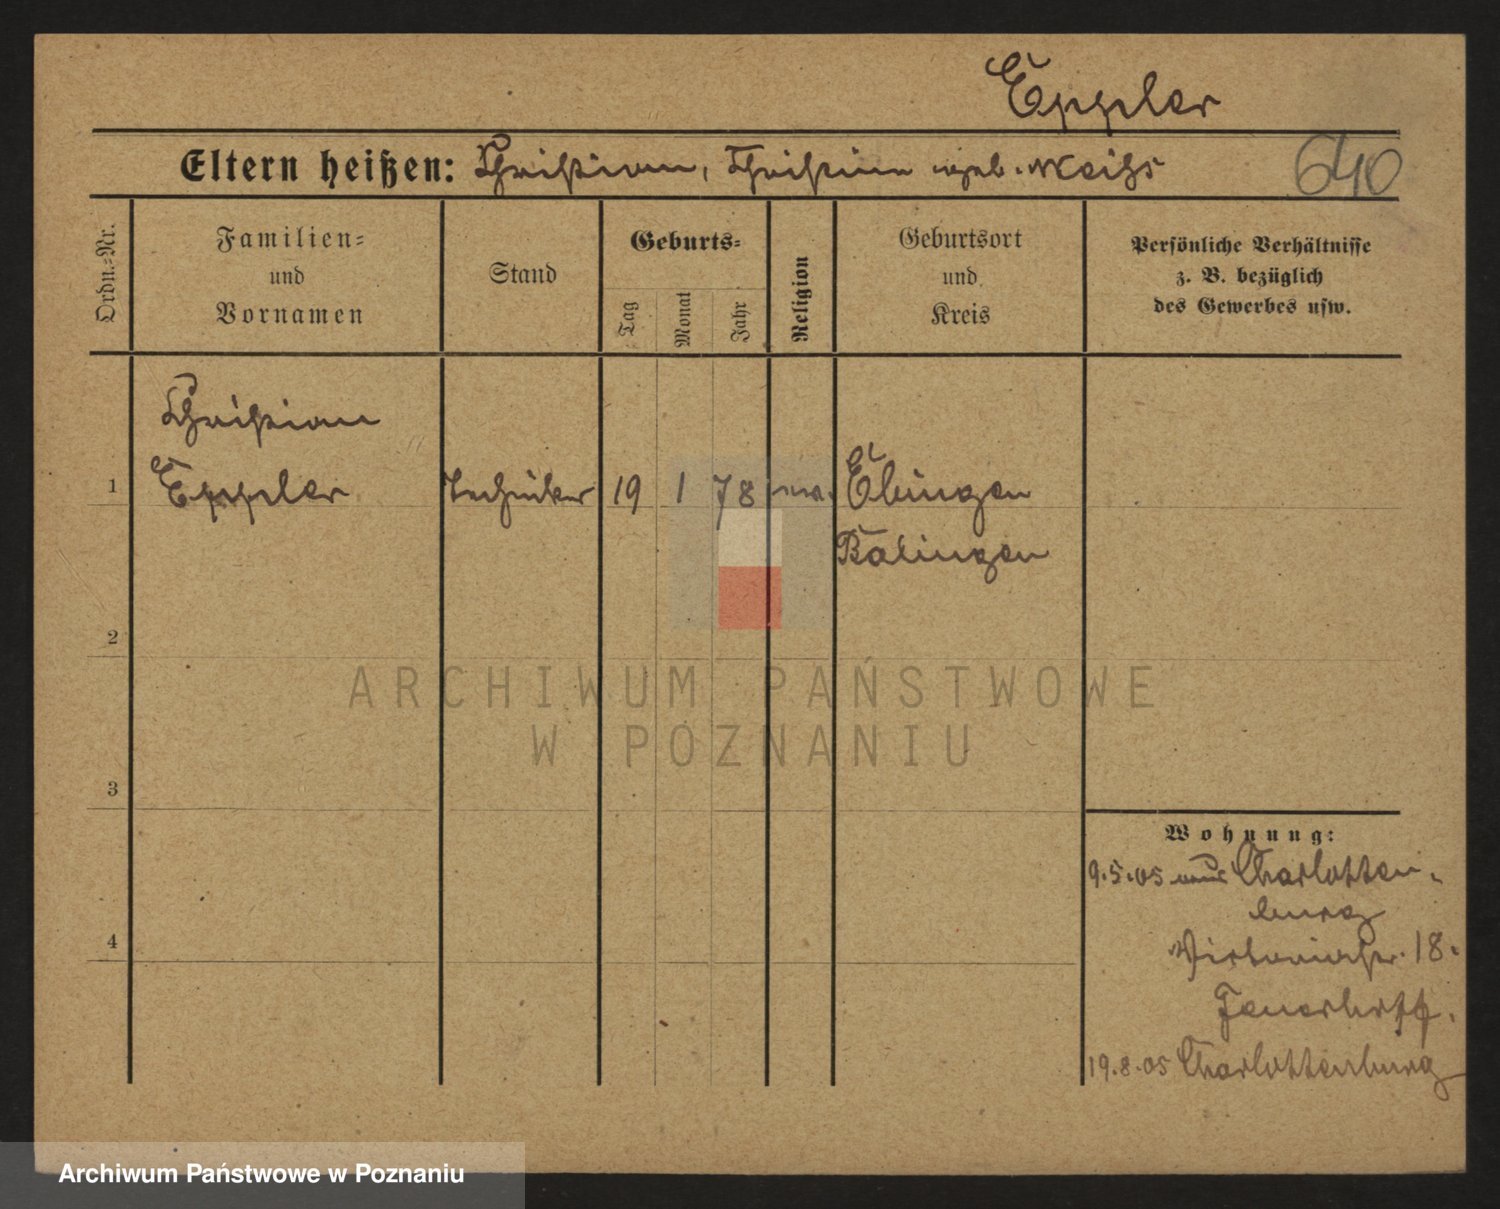 Eppler
Eltern heißen: Christian, Christine geb. Weiß
640
Ordn.-Nr.
Familien-
und
Vornamen
Stand
Geburts-
Tag
Monat
Jahr
Religion
Geburtsort
und
Kreis
Persönliche Verhältnisse
z. B. bezüglich
des Gewerbes usw.
Christian
1 Eppler Techniker 19 1 78 eva. Ebingen
Balingen
2
ARCHIWUM PAŃSTWOWE
W POZNANIU
3
Wohnung:
9.5.05 aus Charlotten-
burg
4
Victoriastr. 18.
19.8.05 Charlottenburg
Archiwum Państwowe w Poznaniu